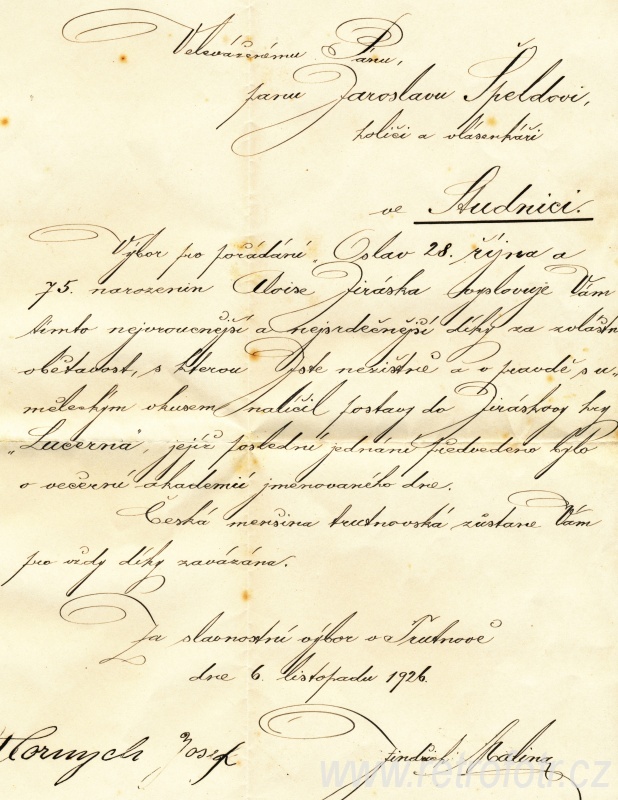 Velevázenému Pánu,
panu Jaroslavu Špeldovi,
holiči a vlásenkáři
ve Studnici.
Výbor pro pořádání „Oslav 28. října a
75. narozenin Aloise Jiráska vyslovuje Vám
tímto nejvroucnější a nejsrdečnější díky za zvláštní
obětavost, s kterou Jste nezištně a v pravdě s u-
měleckým vkusem nalíčil postavy do Jiráskovy hry
„Lucerna", jejíž poslední jednání předvedeno bylo
o večerní akademii jmenovaného dne.
Česká menšina trutnovská zůstane Vám
pro vždy díky zavázána.
Za slavnostní výbor v Trutnově
dne 6. listopadu 1926.
Josef
Jindřich Malina
www.retrofotr.cz